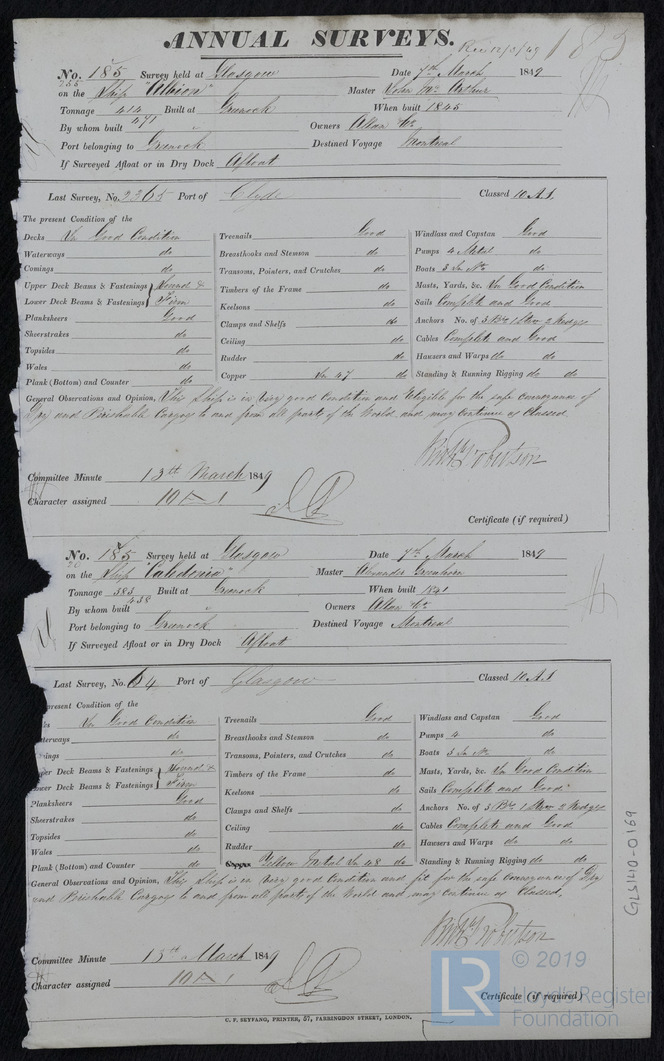 ANNUAL SURVEYS. 183
No. 185 Survey held at Glasgow Date 7th March 1849
on the Ship "Albion" Master John Mc Arthur
Tonnage 414 Built at Greenock When built 1845
471
By whom built " Owners Allan &Co
Port belonging to Greenock Destined Voyage Montreal
If Surveyed Afloat or in Dry Dock Afloat
Last Survey, No. 2365 Port of Clyde Classed 10 A.1.
The present Condition of the
Decks In Good Condition
Waterways do
Comings do
Upper Deck Beams & Fastenings Sound &
Lower Deck Beams & Fastenings Firm
Planksheers Good
Sheerstrakes do
Topsides do
Wales do
Plank (Bottom) and Counter do
Treenails Good
Breasthooks and Stemson do
Transoms, Pointers, and Crutches do
Timbers of the Frame do
Keelsons do
Clamps and Shelfs do
Ceiling do
Rudder do
Copper In 47 do
Windlass and Capstan Good
Pumps 4 Metal do
Boats 3 In No. do
Masts, Yards, &c. In Good Condition
Sails Complete and Good
Anchors No. of 3 Br. 1 Strm 2 Kedges
Cables Complete and Good
Hawsers and Warps do do
Standing & Running Rigging do do
General Observations and Opinion, This Ship is in very good Condition and Eligible for the safe conveyance of
Dry and Perishable Cargoes to and from all parts of the World and may continue as Classed.
Robertson
Committee Minute 13th March 1849
Character assigned 10 A 1
Certificate (if required)
No. 185 Survey held at Glasgow Date 7th March 1849
on the Ship "Caledonia" Master Alexander Greenhorn
Tonnage 383 Built at Greenock When built 1841
438
By whom built " Owners Allan &Co
Port belonging to Greenock Destined Voyage Montreal
If Surveyed Afloat or in Dry Dock Afloat
Last Survey, No. 64 Port of Glasgow Classed 10 A.1
present Condition of the
In Good Condition
do
do
Deck Beams & Fastenings Sound &
Deck Beams & Fastenings Firm
Planksheers Good
Sheerstrakes do
Topsides do
Wales do
Plank (Bottom) and Counter do
Treenails Good
Breasthooks and Stemson do
Transoms, Pointers, and Crutches do
Timbers of the Frame do
Keelsons do
Clamps and Shelfs do
Ceiling do
Rudder do
Copper Yellow Metal In 48 do
Windlass and Capstan Good
Pumps 4 do
Boats 3 In No. do
Masts, Yards, &c. In Good Condition
Sails Complete and Good
Anchors No. of 3 Br. 1 Strm 2 Kedges
Cables Complete and Good
Hawsers and Warps do do
Standing & Running Rigging do do
General Observations and Opinion, This Ship is in very good Condition and fit for the safe conveyance of Dry
and Perishable Cargoes to and from all parts of the World and may continue as Classed.
Robertson
Committee Minute 13th March 1849
Character assigned 10 A 1
Certificate (if required)
C. F. SEYFANG, PRINTER, 57, FARRINGDON STREET, LONDON.
GLS140-0169
LR © 2019
Lloyd's Register
Foundation